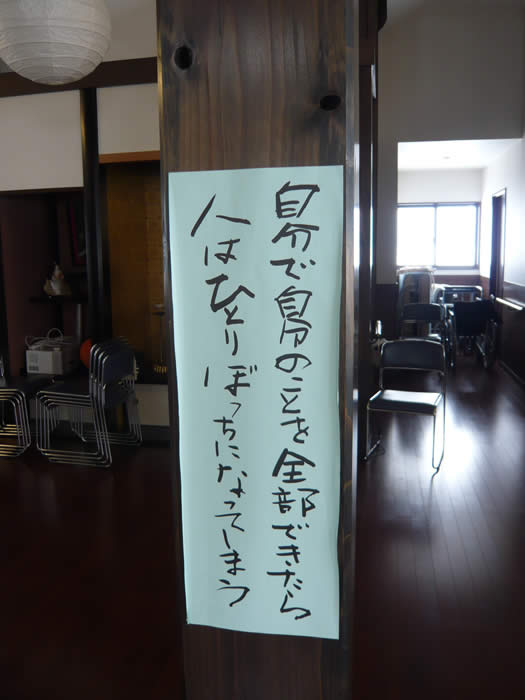 自分で自分のことを全部できたら
人はひとりぼっちになってしまう